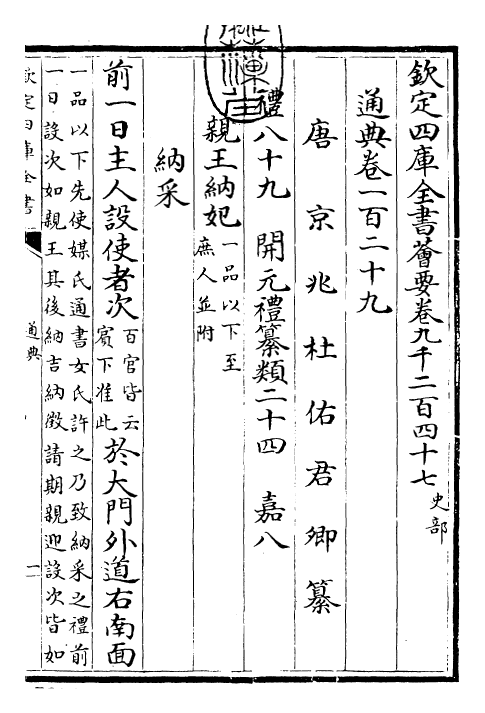 欽定四庫全書薈要卷九千二百四十七 史部
通典卷一百二十九
唐京兆杜佑君卿纂
禮八十九 開元禮纂類二十四 嘉八
親王納妃 一品以下至
庶人並附
納采
前一日主人設使者次 百官皆云
賓下准此 於大門外道右南面
一品以下先使媒氏通書女氏許之乃致納采之禮前
一日設次如親王其後納吉納徵請期親迎設次皆如
欽定四庫全書
通典
一